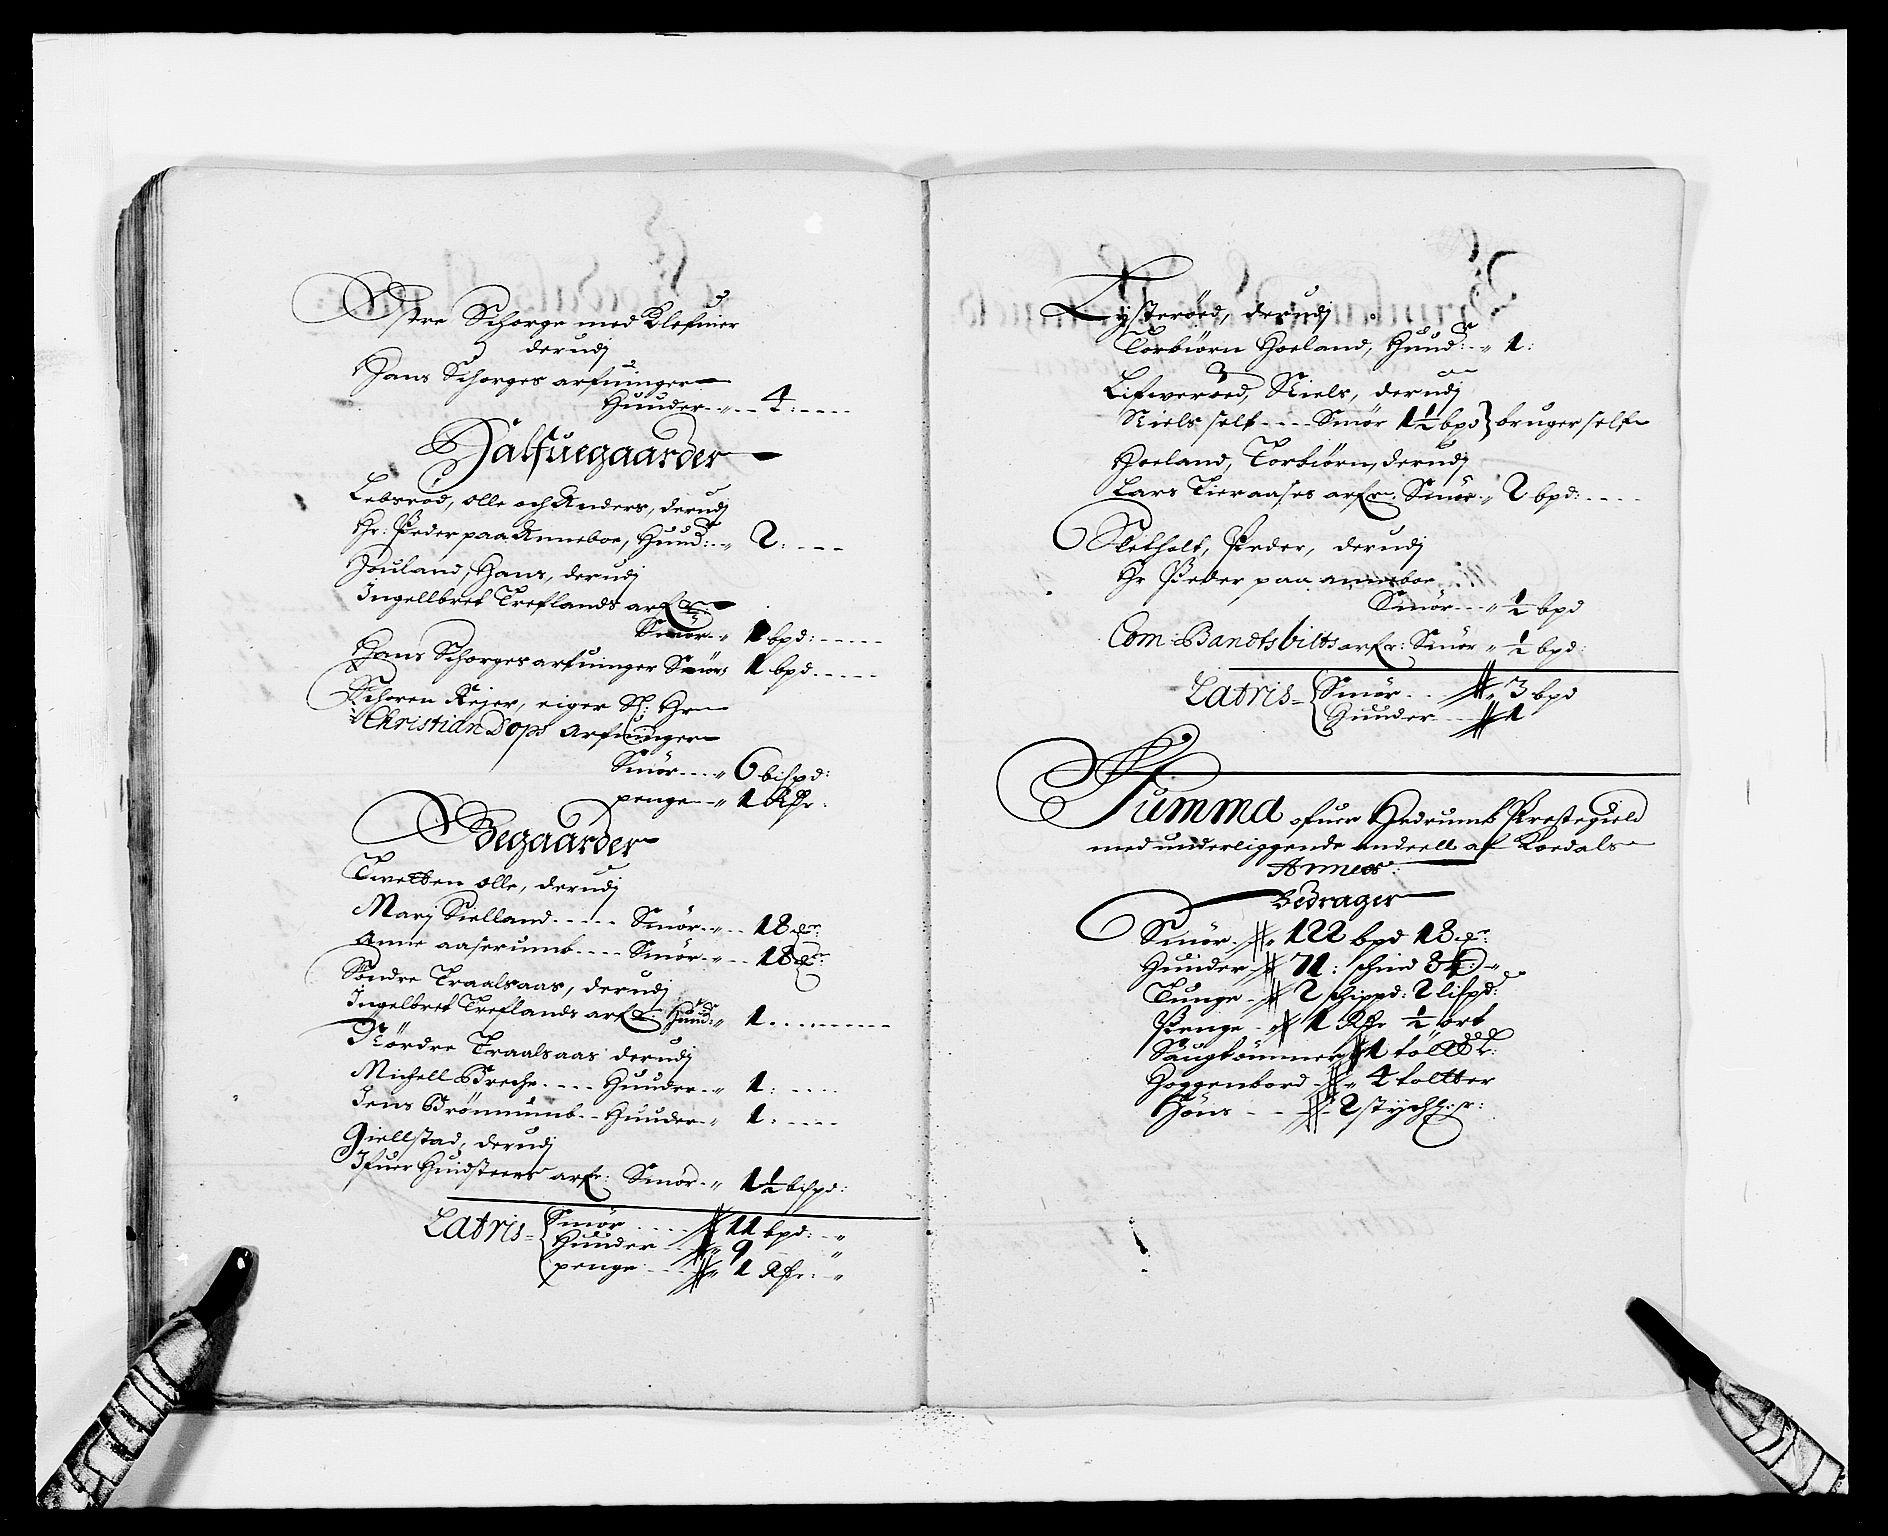 Østre Schorge med Klefuier
derudj
Hans Schorges arfuinger
Huuder - 4:
Halfuegaarder
Lebsrød, olle och Anders, derudj
Hr: Peder paa Anneboe, Huud: 2:
Jouland, Hans, derudj
Ingellbret Treflands arfr:
Smør 1 bpd:
Hans Schorges arfuinger Smør: 1 bpd
Schoren Rejer, eiger Sl: Hr
Christian Dops Arfuinger
Smør 6 bispd:
penge 1 Rdr
Ødegaarder
Twetten olle, derudj
Marj Sielland - Smør - 18
Anne aaserumb - Smør - 18
Søndre Traalsaas, derudj
Ingelbret Treflands arfr: Huud: 1
Nordre Traalsaas derudj
Michell Breche - Huuder 1:
Jens Brönnumb - Huuder 1:
Giellstad, derudj
Ifuer Huidsteens arfr: Smør 1½ bispd:
Latris
Smør 11 bpd:
Huuder 9
penge 1 Rdr:
Lysterøed, derudj
Torbiørn Hoeland, Huud: 1:
Lifwerøed, Niels, derudj
Niels self - Smør 1½ bpd } bruger self
Hoeland, Torbiørn, derudj
Lars Tieraases arfr. Smør 2 bpd:
Sletholt, Peder, derudj
Hr Peder paa anneboe
Smør ½ bpd
Com: Bandtsbilts arfr: Smør ½ bpd:
Latris
Smør 3 bpd
Huuder 1
Summa ofuer Hedrumb Prestegield
med underliggende andeell af Kordals
Annex:
Bedrager
Smør 122 bpd 18
Huuder 71: schind 3
Tunge 2 schippd: 2 lispd:
Penge 1 Rdr ½ ort
Saugtømmer 1 tollt
Hoggenbord 4 toltter
Høns 2 stych: